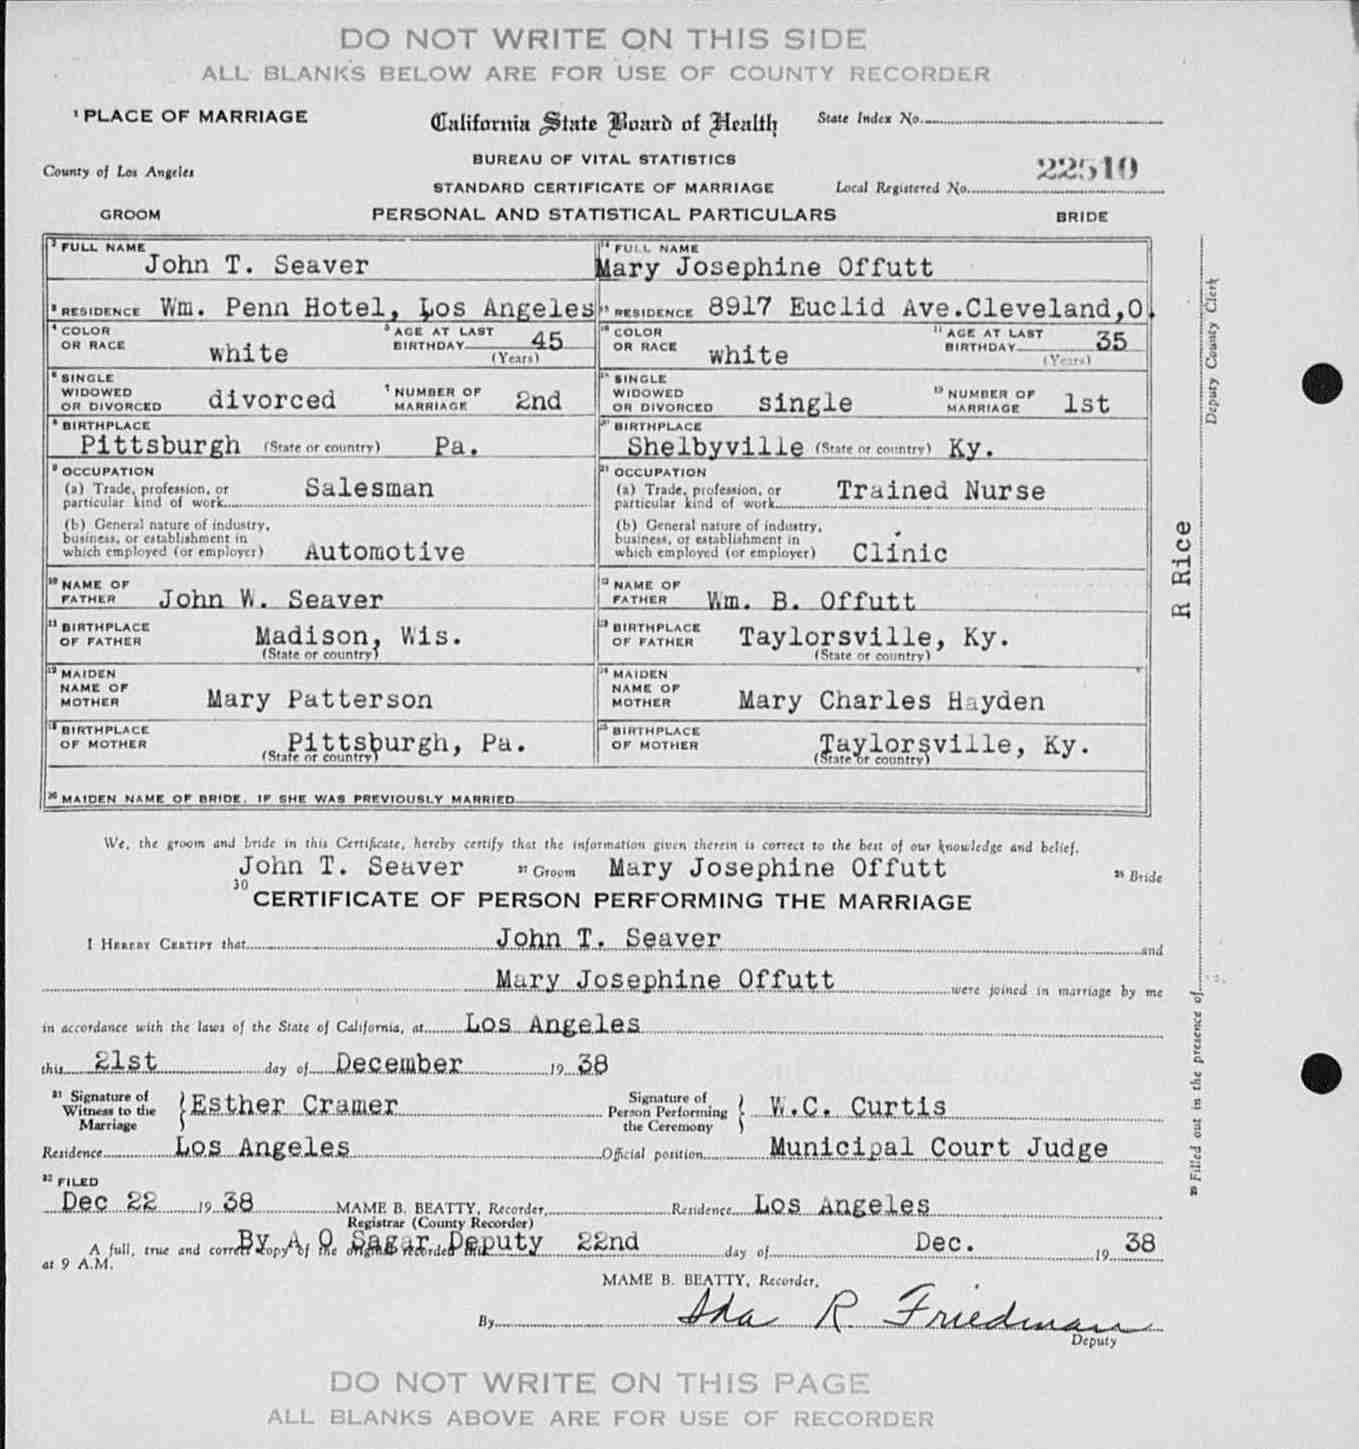 DO NOT WRITE ON THIS SIDE
ALL BLANKS BELOW ARE FOR USE OF COUNTY RECORDER
1 PLACE OF MARRIAGE
California State Board of Health
State Index No.
BUREAU OF VITAL STATISTICS
22510
County of Los Angeles
STANDARD CERTIFICATE OF MARRIAGE
Local Registered No.
GROOM
PERSONAL AND STATISTICAL PARTICULARS
BRIDE
FULL NAME John T. Seaver
FULL NAME Mary Josephine Offutt
RESIDENCE Wm. Penn Hotel, Los Angeles
RESIDENCE 8917 Euclid Ave.Cleveland,O.
COLOR OR RACE white
AGE AT LAST BIRTHDAY 45 (Years)
COLOR OR RACE white
AGE AT LAST BIRTHDAY 35 (Years)
SINGLE WIDOWED OR DIVORCED divorced
NUMBER OF MARRIAGE 2nd
SINGLE WIDOWED OR DIVORCED single
NUMBER OF MARRIAGE 1st
BIRTHPLACE Pittsburgh (State or country) Pa.
BIRTHPLACE Shelbyville (State or country) Ky.
OCCUPATION
(a) Trade, profession, or particular kind of work Salesman
OCCUPATION
(a) Trade, profession, or particular kind of work Trained Nurse
(b) General nature of industry, business, or establishment in which employed (or employer) Automotive
(b) General nature of industry, business, or establishment in which employed (or employer) Clinic
NAME OF FATHER John W. Seaver
NAME OF FATHER Wm. B. Offutt
BIRTHPLACE OF FATHER Madison, Wis.
(State or country)
BIRTHPLACE OF FATHER Taylorsville, Ky.
(State or country)
MAIDEN NAME OF MOTHER Mary Patterson
MAIDEN NAME OF MOTHER Mary Charles Hayden
BIRTHPLACE OF MOTHER Pittsburgh, Pa.
(State or country)
BIRTHPLACE OF MOTHER Taylorsville, Ky.
(State or country)
MAIDEN NAME OF BRIDE, IF SHE WAS PREVIOUSLY MARRIED
We, the groom and bride in this Certificate, hereby certify that the information given therein is correct to the best of our knowledge and belief.
John T. Seaver Groom Mary Josephine Offutt Bride
30 CERTIFICATE OF PERSON PERFORMING THE MARRIAGE
I HEREBY CERTIFY that John T. Seaver and
Mary Josephine Offutt were joined in marriage by me
in accordance with the laws of the State of California, at Los Angeles
this 21st day of December 19 38
31 Signature of Witness to the Marriage } Esther Cramer
Signature of Person Performing the Ceremony } W.C. Curtis
Residence Los Angeles
Official position Municipal Court Judge
32 FILED
Dec 22 19 38 MAME B. BEATTY, Recorder, Residence Los Angeles
Registrar (County Recorder)
By A O Sagar Deputy
A full, true and correct copy of the original recorded this 22nd day of Dec. 19 38
at 9 A.M.
MAME B. BEATTY, Recorder,
By Ida R Friedman
Deputy
DO NOT WRITE ON THIS PAGE
ALL BLANKS ABOVE ARE FOR USE OF RECORDER
Filled out in the presence of R Rice Deputy County Clerk